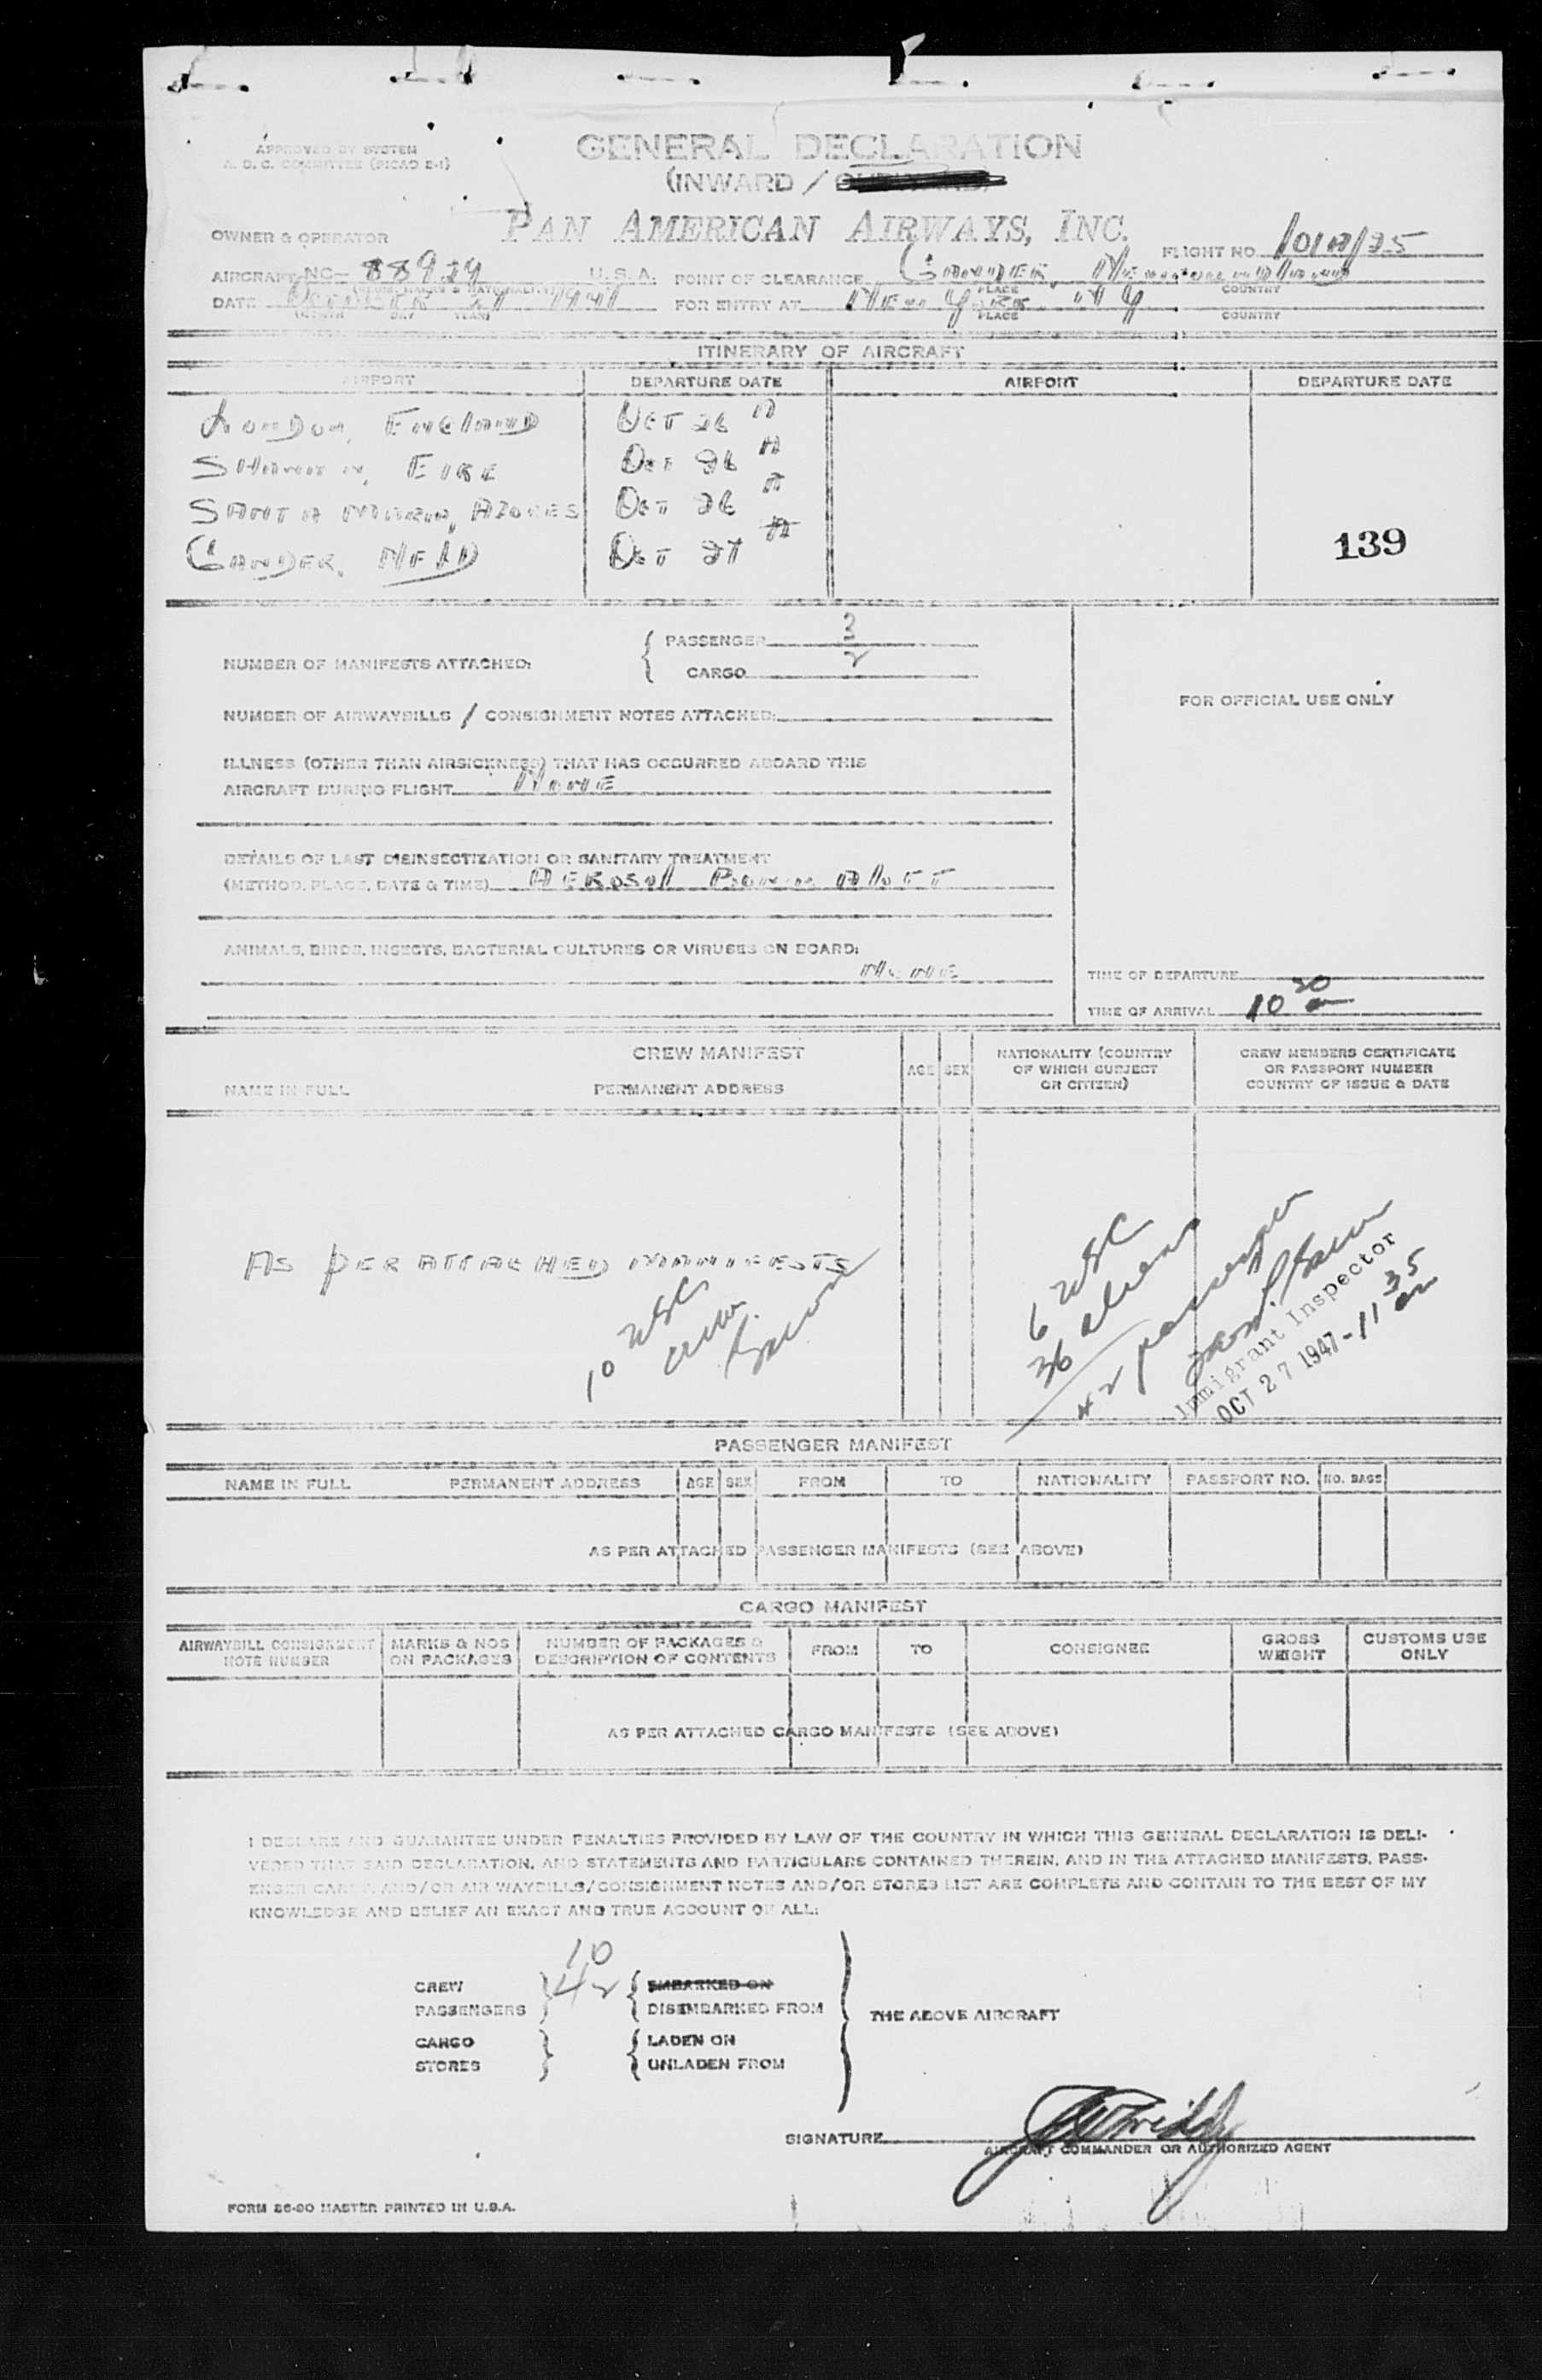 APPROVED BY SYSTEM
A. D. C. COMMITTEE (PICAO 2-1)
GENERAL DECLARATION
(INWARD /
PAN AMERICAN AIRWAYS, INC.
OWNER & OPERATOR
FLIGHT NO.
AIRCRAFT NC- U.S.A. POINT OF CLEARANCE GANDER, Newfoundland
(REGIS. MARKS & NATIONALITY) PLACE COUNTRY
DATE OCTOBER 27 1947 FOR ENTRY AT New York NY
(MONTH DAY YEAR) PLACE COUNTRY
ITINERARY OF AIRCRAFT
AIRPORT DEPARTURE DATE AIRPORT DEPARTURE DATE
London, England Oct 26
Shannon, Eire Oct 26
Santa Maria, Azores Oct 26
Gander, Nfld Oct 27
139
NUMBER OF MANIFESTS ATTACHED: { PASSENGER 3
CARGO 2
FOR OFFICIAL USE ONLY
NUMBER OF AIRWAYBILLS / CONSIGNMENT NOTES ATTACHED:
ILLNESS (OTHER THAN AIRSICKNESS) THAT HAS OCCURRED ABOARD THIS
AIRCRAFT DURING FLIGHT None
DETAILS OF LAST DISINSECTIZATION OR SANITARY TREATMENT
(METHOD, PLACE, DATE & TIME) Aerosol Bomb
ANIMALS, BIRDS, INSECTS, BACTERIAL CULTURES OR VIRUSES ON BOARD:
None
TIME OF DEPARTURE
TIME OF ARRIVAL 10 30
CREW MANIFEST
NAME IN FULL PERMANENT ADDRESS AGE SEX NATIONALITY (COUNTRY OF WHICH SUBJECT OR CITIZEN) CREW MEMBERS CERTIFICATE OR PASSPORT NUMBER COUNTRY OF ISSUE & DATE
As per attached manifests
10 USC
crew
6 USC
36 aliens
42 passengers
Immigrant Inspector
OCT 27 1947 - 11 35
PASSENGER MANIFEST
NAME IN FULL PERMANENT ADDRESS AGE SEX FROM TO NATIONALITY PASSPORT NO. NO. BAGS
AS PER ATTACHED PASSENGER MANIFESTS (SEE ABOVE)
CARGO MANIFEST
AIRWAYBILL CONSIGNMENT NOTE NUMBER MARKS & NOS ON PACKAGES NUMBER OF PACKAGES & DESCRIPTION OF CONTENTS FROM TO CONSIGNEE GROSS WEIGHT CUSTOMS USE ONLY
AS PER ATTACHED CARGO MANIFESTS (SEE ABOVE)
I DECLARE AND GUARANTEE UNDER PENALTIES PROVIDED BY LAW OF THE COUNTRY IN WHICH THIS GENERAL DECLARATION IS DELI-
VERED THAT SAID DECLARATION, AND STATEMENTS AND PARTICULARS CONTAINED THEREIN, AND IN THE ATTACHED MANIFESTS, PASS-
ENGER CARGO, AND/OR AIR WAYBILLS/CONSIGNMENT NOTES AND/OR STORES LIST ARE COMPLETE AND CONTAIN TO THE BEST OF MY
KNOWLEDGE AND BELIEF AN EXACT AND TRUE ACCOUNT OF ALL:
CREW 10 EMBARKED ON
PASSENGERS 42 DISEMBARKED FROM
THE ABOVE AIRCRAFT
CARGO LADEN ON
STORES UNLADEN FROM
SIGNATURE
AIRCRAFT COMMANDER OR AUTHORIZED AGENT
FORM 26-90 MASTER PRINTED IN U.S.A.